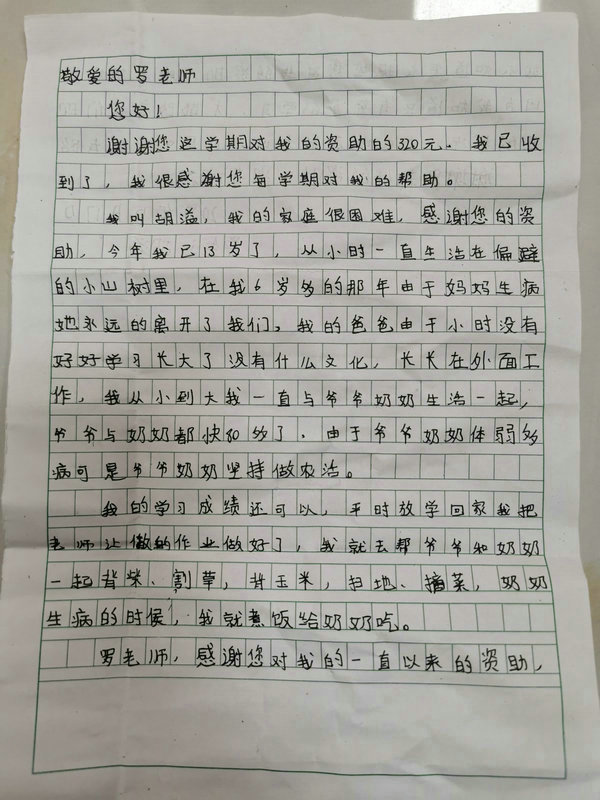 敬爱的罗老师
您好！
谢谢您这学期对我的资助的320元．我已收
到了，我很感谢您每学期对我的帮助。
我叫胡溢，我的家庭很困难，感谢您的资
助，今年我已13岁了，从小时一直生活在偏避
的小山树里，在我6岁多的那年由于妈妈生病
她永远的离开了我们，我的爸爸由于小时没有
好好学习长大了没有什么文化，长长在外面工
作，我从小到大我一直与爷爷奶奶生活一起，
爷爷与奶奶都快80多了、由于爷爷奶奶体弱多
病可是爷爷奶奶坚持做农活。
我的学习成绩还可以，平时放学回家我把
老师让做的作业做好了，我就去帮爷爷和奶奶
一起背柴、割草，背玉米，扫地、摘菜，奶奶
生病的时候，我就煮饭给奶奶吃。
罗老师，感谢您对我的一直以来的资助，